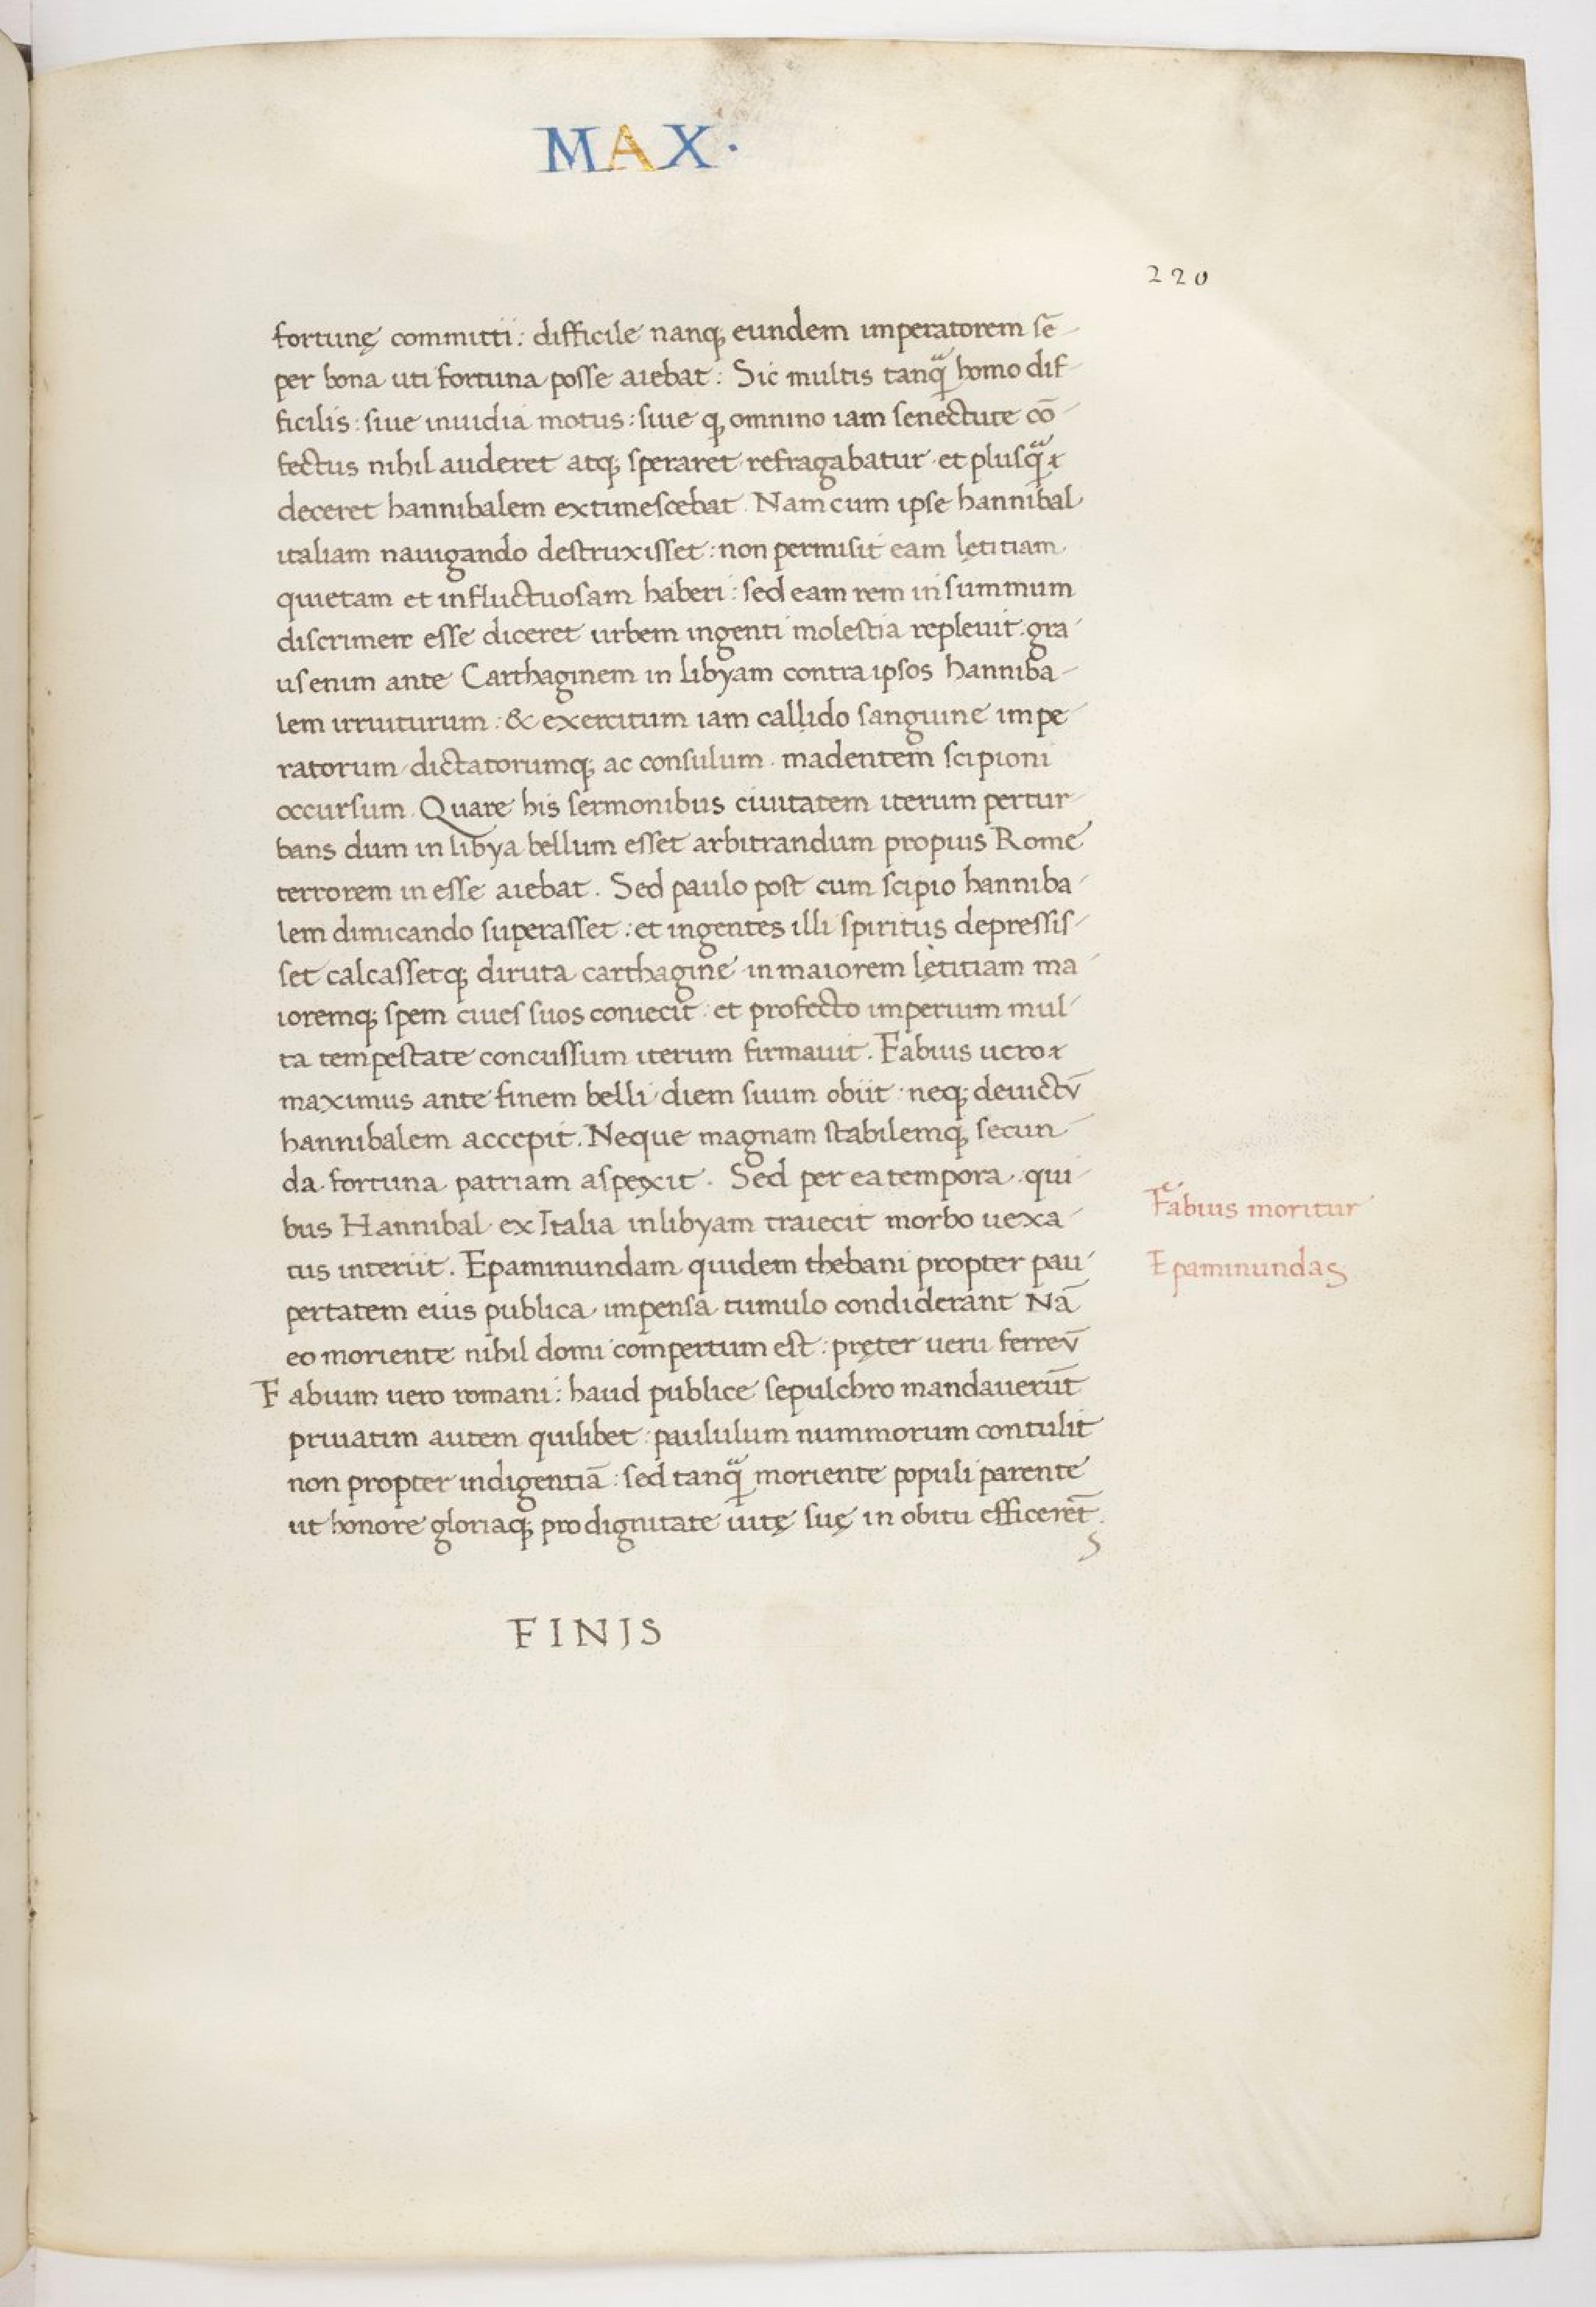 MAX·
220
fortunę committi: difficile nanq; eundem imperatorem sē
per bona uti fortuna posse aiebat: Sic multis tanq̃ homo dif
ficilis: siue inuidia motus: siue q; omnino iam senectute cō
fectus nihil auderet atq; speraret refragabatur et plusq̃
deceret hannibalem extimescebat. Nam cum ipse hannibal
italiam nauigando destruxisset: non permisit eam lętitiam
quietam et influctuosam haberi: sed eam rem in summum
discrimen esse diceret urbem ingenti molestia repleuit: gra
us enim ante Carthaginem in libyam contra ipsos hanniba
lem irruiturum: & exercitum iam callido sanguine impe
ratorum dictatorumq; ac consulum madentem scipioni
occursum. Quare his sermonibus ciuitatem iterum pertur
bans dum in libya bellum esset arbitrandum propius Rome
terrorem in esse aiebat. Sed paulo post cum scipio hanniba
lem dimicando superasset: et ingentes illi spiritus depressis
set calcassetq; diruta carthagine in maiorem lętitiam ma
ioremq; spem ciues suos coniecit: et profecto imperium mul
ta tempestate concussum iterum firmauit. Fabius uero
maximus ante finem belli diem suum obiit: neq; deuictū
hannibalem accepit. Neque magnam stabilemq; secun
da fortuna patriam aspexit. Sed per ea tempora qui
bus Hannibal ex Italia in libyam traiecit morbo uexa
tus interiit. Epaminundam quidem thebani propter pau
pertatem eius publica impensa tumulo condiderant Nā
eo moriente nihil domi compertum est: pręter ueru ferreū
Fabium uero romani: haud publice sepulchro mandauerūt
priuatim autem quilibet: paululum nummorum contulit
non propter indigentiā: sed tanq̃ moriente populi parente
ut honore gloriaq; pro dignitate uitę suę in obitu efficeret̄.
Fabius moritur
Epaminundas
FINIS